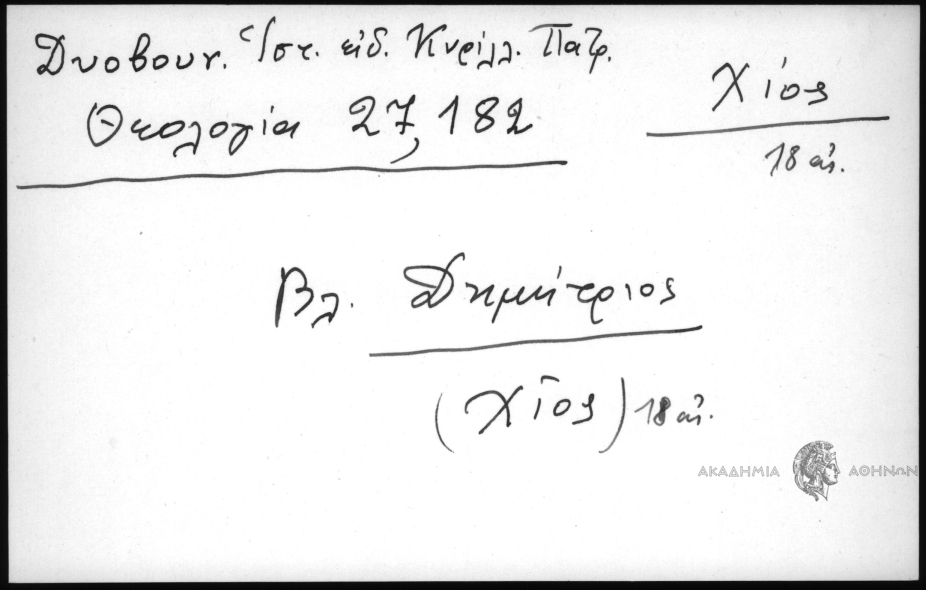 Δυοβουν. Ἱστ. εἰδ. Κυρίλλ. Πατρ.
Θεολογία 27, 182
Χίος
18 αἰ.
Βλ. Δημήτριος
(Χῖος) 18 αἰ.
ΑΚΑΔΗΜΙΑ ΑΘΗΝΩΝ